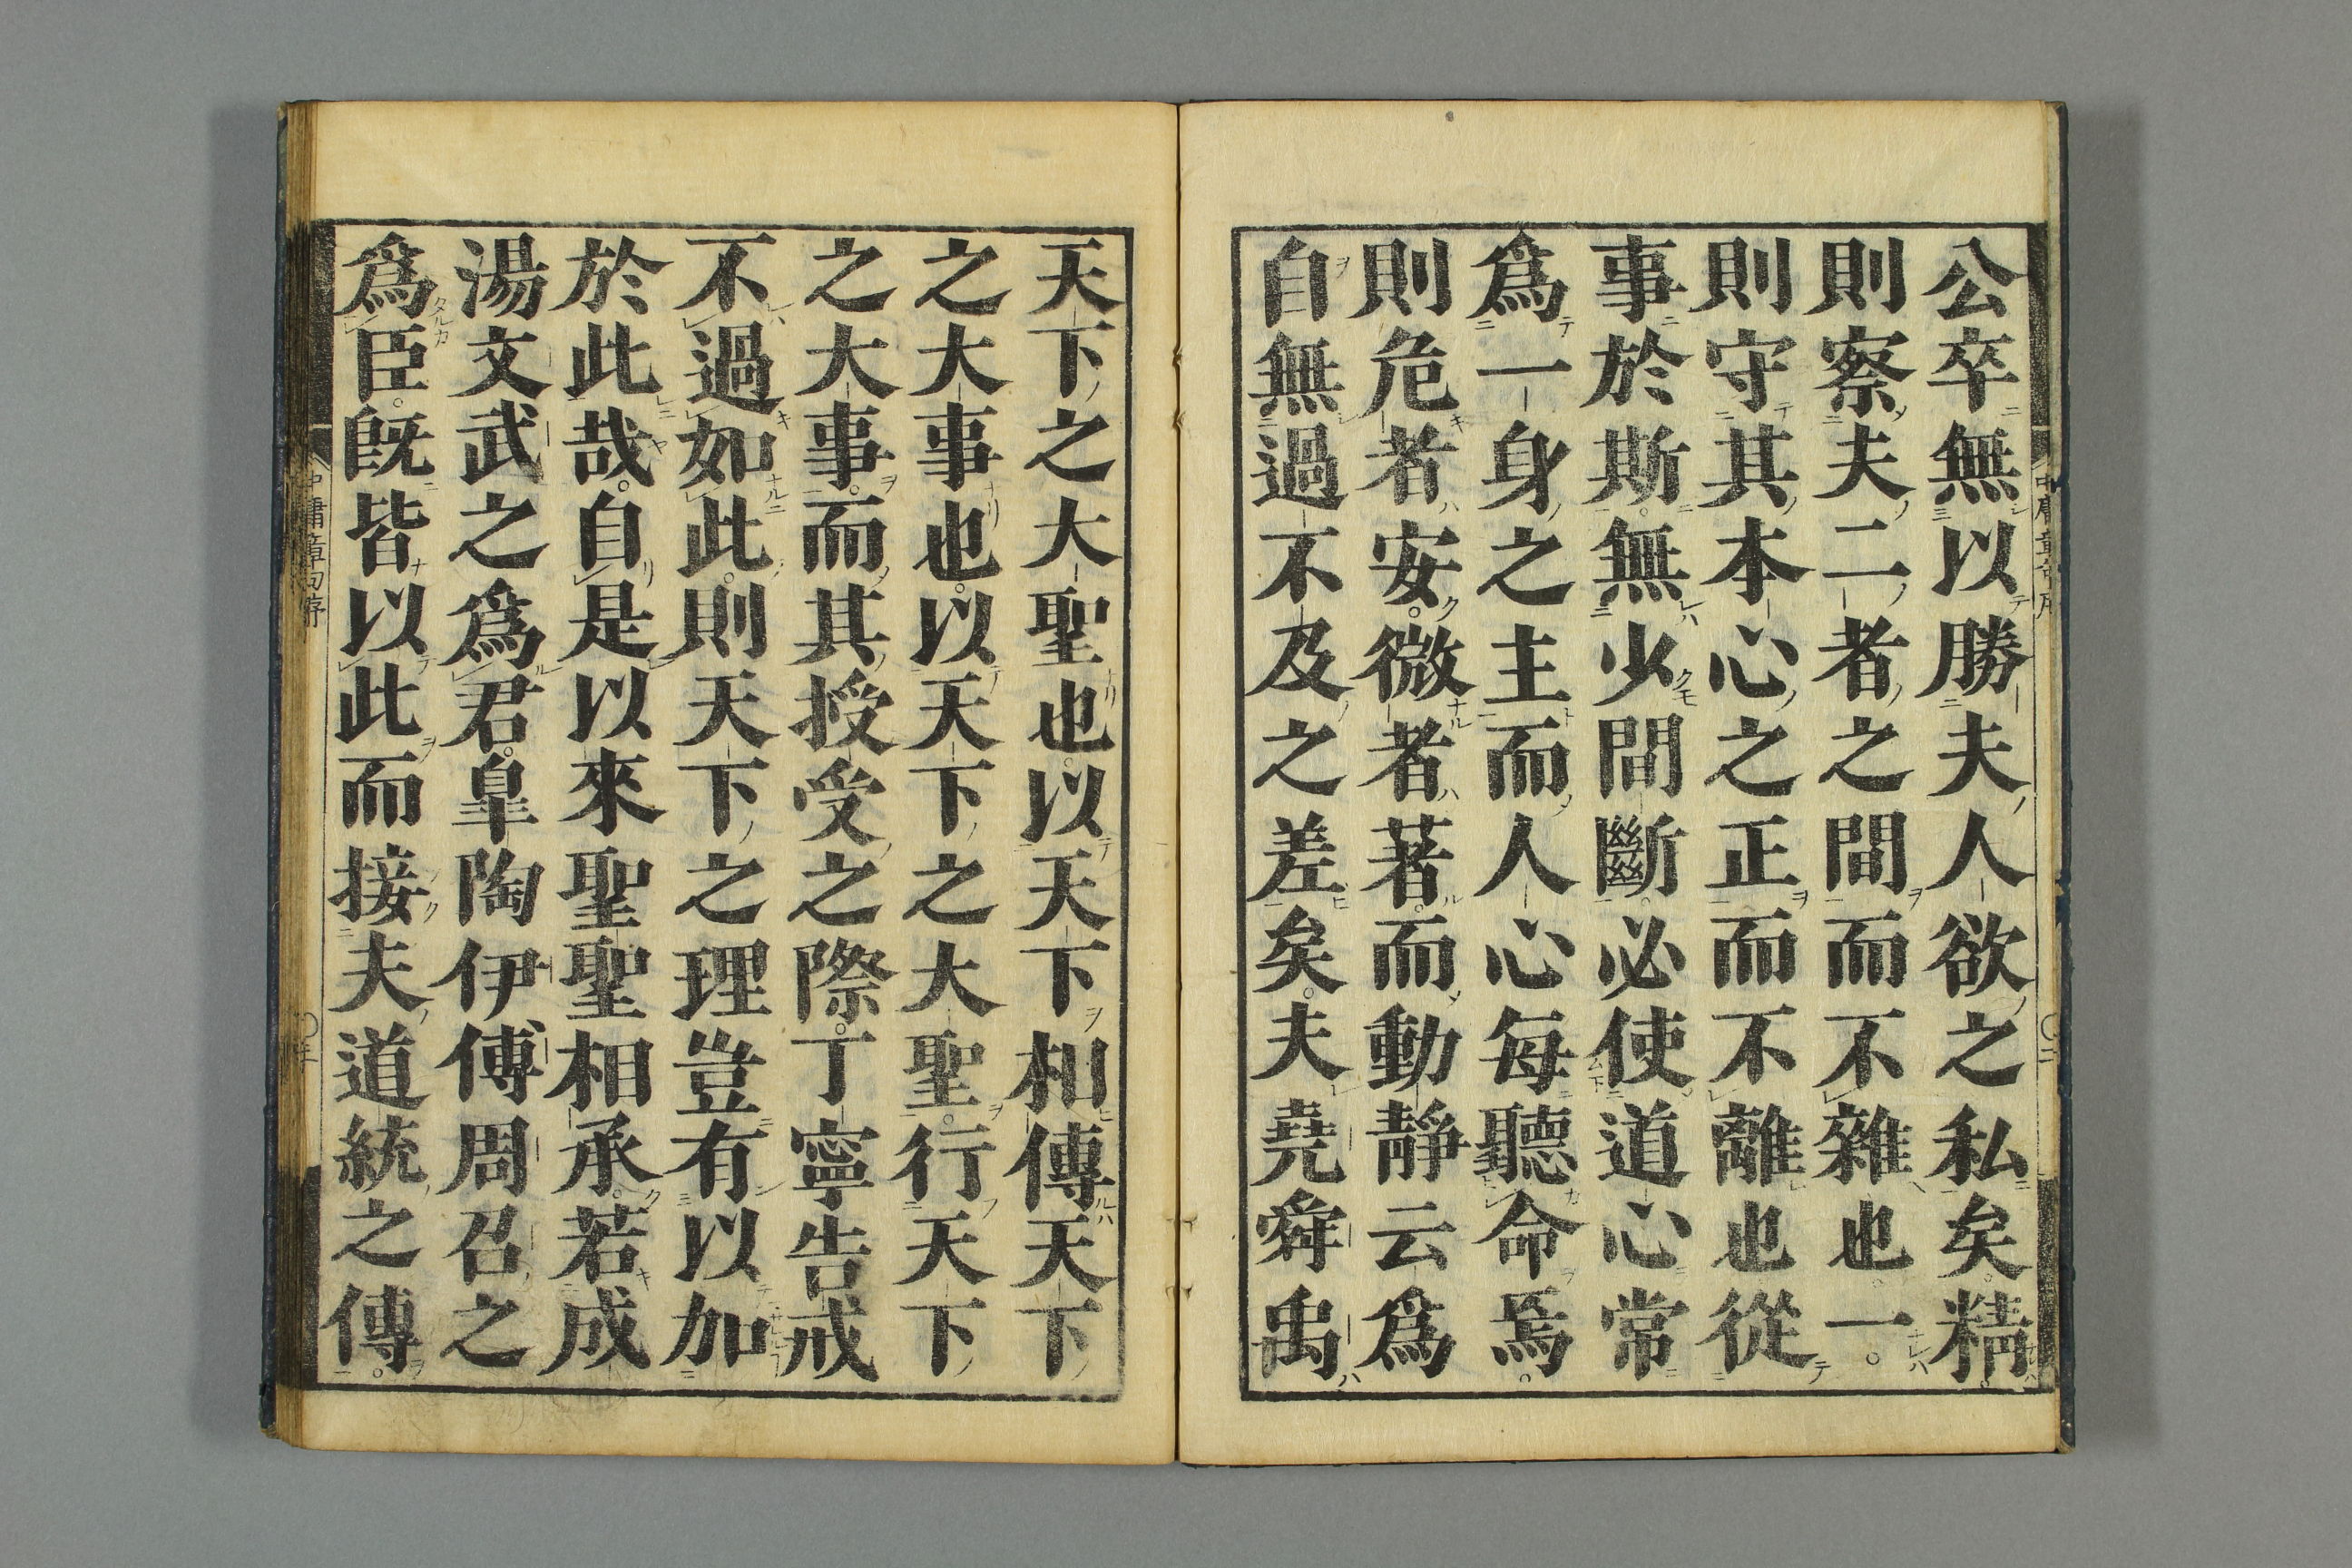 公卒無以勝夫人欲之私矣。精。
則察夫二者之間而不雜也。一。
則守其本心之正而不離也從
事於斯。無少間斷。必使道心常
爲一身之主而人心每聽命焉。
則危者安。微者著。而動靜云爲
自無過不及之差矣。夫堯舜禹
天下之大聖也。以天下相傳天下
之大事也。以天下之大聖。行天下
之大事。而其授受之際。丁寧告戒
不過如此。則天下之理豈有以加
於此哉。自是以來聖聖相承。若成
湯文武之爲君。皐陶伊傅周召之
爲臣。既皆以此而接夫道統之傳。
中庸章句序